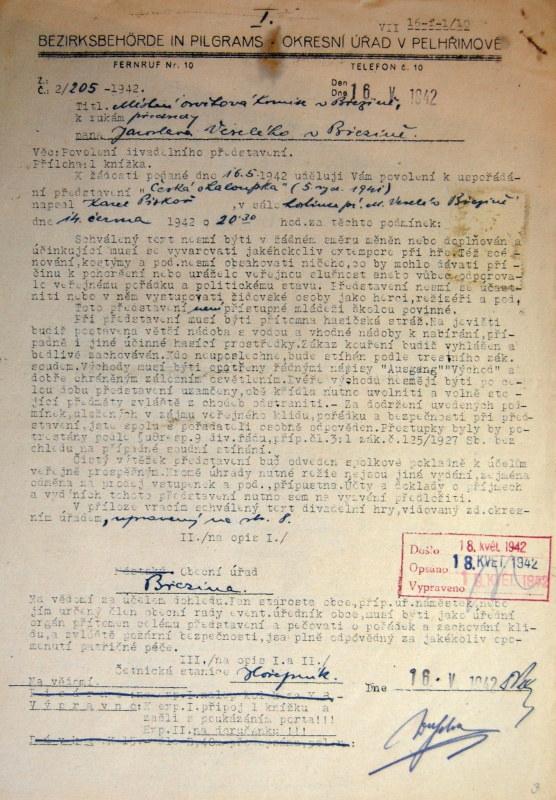 I.
VII 16-f-1/10
BEZIRKSBEHÖRDE IN PILGRAMS - OKRESNÍ ÚŘAD V PELHŘIMOVĚ
FERNRUF Nr. 10 TELEFON č. 10
Z.:
Č.: 2/205 -1942.
Den
Dne 16. V 1942
Titl. Místní osvětová komise v Březině,
k rukám předsedy
pana Jaroslava Veselého v Březině.
Věc: Povolení divadelního představení.
Příloha: 1 knížka.
K žádosti podané dne 16.5.1942 uděluji Vám povolení k uspořádání představení "Česká chaloupka"
napsal Karel , v sále M. Veselého Březině
dne 14. června 1942 o 20.30 hod. za těchto podmínek:
Schválený text nesmí býti v žádném směru měněn nebo doplňován a
účinkující musí se vyvarovati jakéhokoliv extempore při hře. Též scé-
nování, kostymy a pod. nesmí obsahovati ničeho, co by mohlo dávati pří-
činu k pohoršení nebo uráželo veřejnou slušnost aneb vůbec odporova-
lo veřejnému pořádku a politickému stavu. Představení nesmí se účast-
niti nebo v něm vystupovati židovské osoby jako herci, režizéři a pod.
Toto představení není přístupné mládeži školou povinné.
Při představení musí být přítomna hasičská stráž. Na jevišti
budiž postavena větší nádoba s vodou a vhodné nádoby k nabírání, pří-
padně i jiné účinné hasící prostředky. Zákaz kouření budiž vyhlášen a
bedlivě zachováván. Kdo neuposlechne, bude stíhán podle trestního zák.
soudem. Východy musí být opatřeny řádnými nápisy "Ausgang" "Východ" a
dobře chráněným záložním osvětlením. Dveře východu nesmějí býti po ce-
lou dobu představení uzamčeny, obě křídla nutno uvolniti a volně sto-
jící předměty zvláště z chodeb odstraniti.- Za dodržení uvedených po-
mínek, uložených v zájmu veřejného klidu, pořádku a bezpečnosti při před-
stavení, jste spolu s pořadateli osobně odpovědën. Přestupky byly by po-
trestány podle resp. 9 div. řádu, příp. čl. 3:1 zák. č. 125/1927 Sb. bez
ohledu na případné soudní stíhání.
Čistý výtěžek představení buď odveden spolkové pokladně k účelům
veřejně prospěšným. Kromě úhrady nutné režie nejsou jiná vydání, zejména
odměna za prodej vstupenek a pod., přípustna. Účty a doklady o příjmech
a vydáních tohoto představení nutno sem na vyzvání předložiti.
V příloze vracím schválený text divadelní hry, vidovaný zd. okres-
ním úřadem, upravený na str. 8.
II./na opis I./
Městský Obecní úřad
Březina.
Došlo 18. květ 1942
Opsano 18. KVĚT. 1942
Vypraveno 18. KVĚT 1942
Na vědomí za účelem dohledu. Pan starosta obce, příp. uř. náměstek, nebo
jím určený člen obecní rady event. úředník obce, musí býti, jako úřední
orgán přítomen celému představení a pečovati o pořádek a zachování kli-
du, a zvláště požární bezpečnosti, jsa plně odpovědný za jakékoliv opo-
menutí patřičné péče.
III./na opis I.a II./
Četnická stanice Hořepník.
Na vědomí.
Dne 16. V 1942
Výpravno: K exp. I. připoj 1 knížku a
zašli s poukázáním porta!!!
Exp. II na doručenku !!!
3